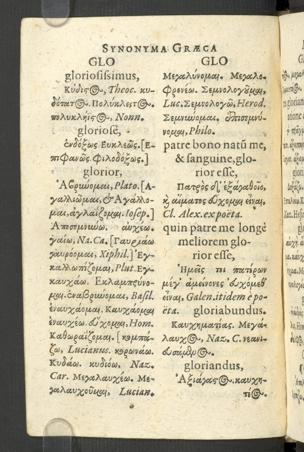 SYNONYMA GRÆCA
GLO
gloriosissimus,
Κύδις@, Theoc. κυ-
Πολυκλειτ@,
πολυκλήϊς@, Nonn.
gloriosè,
ἐνδόξως Εὐκλεῶς. [Ε-
πιφανῶς Φιλοδόξως.]
glorior,
Plato. [Α-
γαλλιῶμαι, & Ἀγάλλο-
μαι, ἀγλαΐζομαι. Iosep.]
Ἀποσεμνύνω. αὐχέω.
γαίω, Na. Ca. [Γαυριάω
γαυροῦμαι, Xiphil.] Ἐγ-
καλλωπίζομαι, Plut. Ἐγ-
καυχάω. Ἐκλαμπρύνο-
μαι. Basil.
ἐναυχάομαι. Καυχάομαι
ἐναυχέω. εὔχομαι, Hom.
Καθωραΐζομαι. [κομπά-
ζω, Lucianus. κορωνιάω.
Κυδιάω. κυδίω, Naz.
Car. Μεγαλαυχέω. Με-
γαλαυχοῦμαι, Lucian.
GLO
Μεγαλύνομαι. Μεγαλο-
φρονέω. Σεμνολογοῦμαι,
Luc. Σεμνολογῶ, Herod.
Σεμνύνομαι,
Philo.
patre bono natũ me,
& sanguine, glo-
rior esse,
Πατρὸς δ' ἐξ ἀγαθοῖο,
κ̀ αἵματος εὔχομαι εἶναι,
Cl. Alex. ex poëta.
quin patre me longè
meliorem glo-
rior esse,
Ἡμεῖς τοι πατέρων
μέγ' ἀμείνονες εὐχόμεθ'
εἶναι. Galen. itidem è po-
ëta.
gloriabundus.
Καυχηματίας. Μεγά-
λαυχ@, Naz. C.
gloriandus,
Ἀξιάγασ@. καυχη-
τέ@.